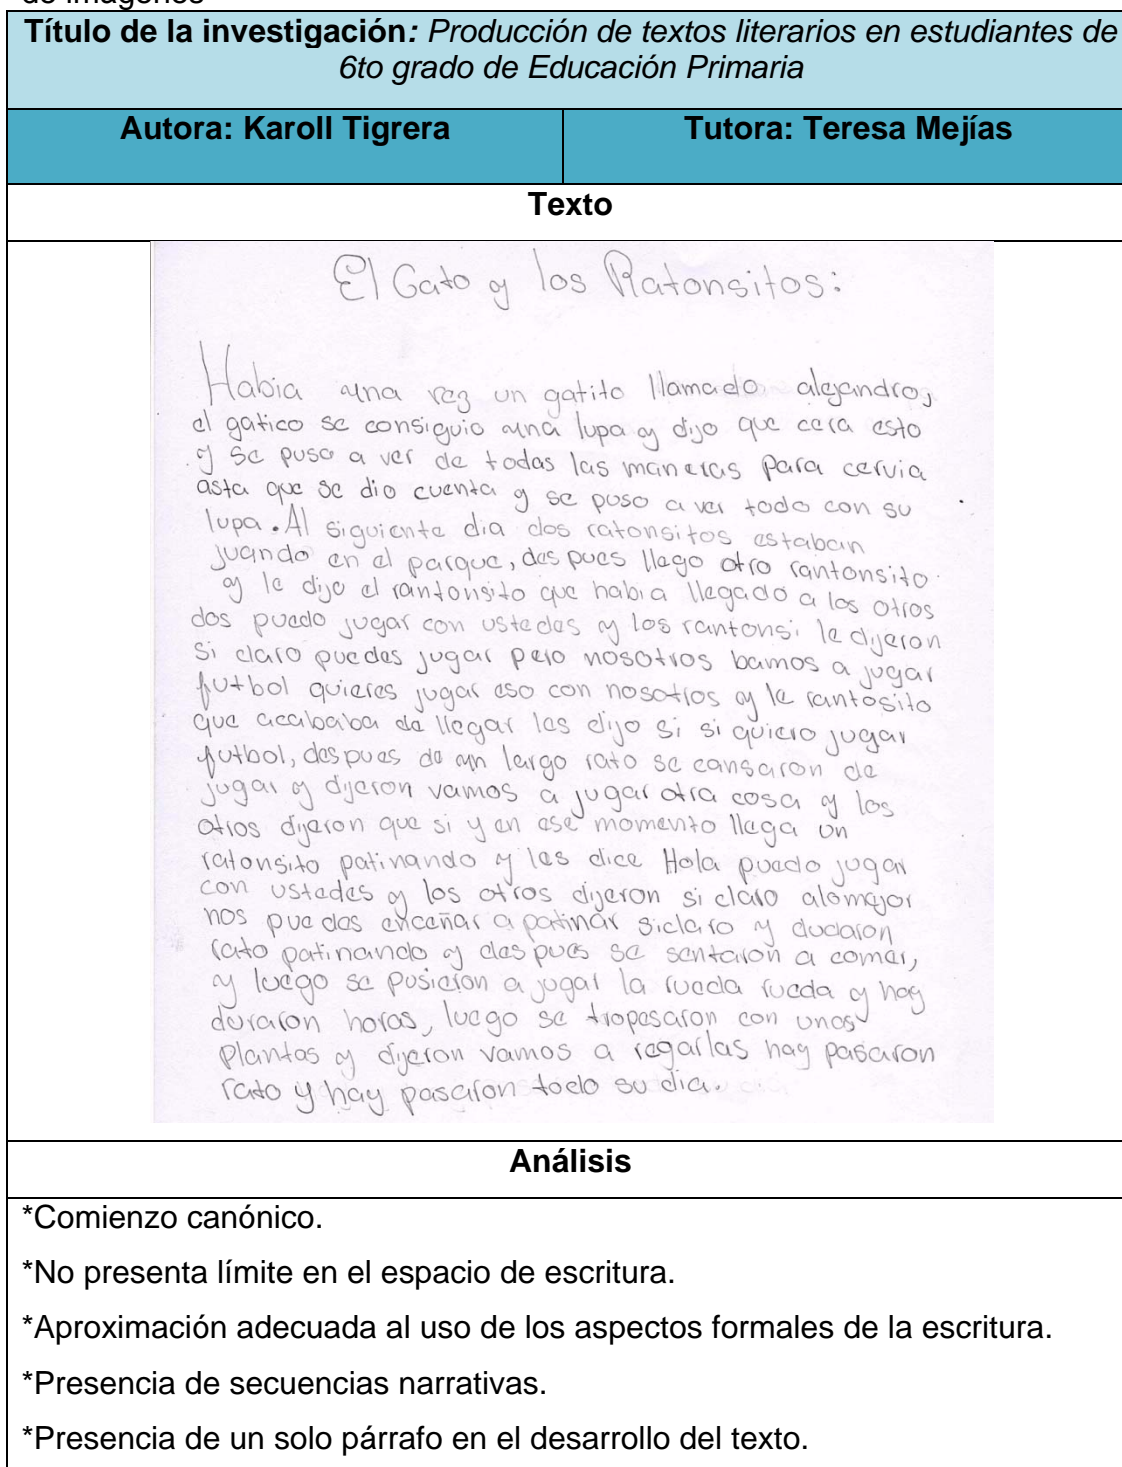 de imágenes
Título de la investigación: Producción de textos literarios en estudiantes de
6to grado de Educación Primaria
Autora: Karoll Tigrera
Tutora: Teresa Mejías
Texto
El Gato y los Ratonsitos:
Habia una vez un gatito llamado alejandro,
el gatico se consiguio una lupa y dijo que cera esto
y se puso a ver de todas las maneras para cervia
asta que se dio cuenta y se puso a ver todo con su
lupa. Al siguiente dia dos ratonsitos estaban
juando en el parque, despues llego otro rantonsito
y le dijo el rantonsito que habia llegado a los otros
dos puedo jugar con ustedes y los rantonsi le dijeron
si claro puedes jugar pero nosotros bamos a jugar
futbol quieres jugar eso con nosotros y le rantosito
que acababa de llegar les dijo si si quiero jugar
futbol, despues de un largo rato se cansaron de
jugar y dijeron vamos a jugar otra cosa y los
otros dijeron que si y en ese momento llega un
ratonsito patinando y les dice Hola puedo jugar
con ustedes y los otros dijeron si claro alomejor
nos puedes enceñar a patinar siclaro y duraron
rato patinando y despues se sentaron a comer,
y luego se pusieron a jugar la rueda rueda y hay
duraron horas, luego se tropesaron con unas
Plantas y dijeron vamos a regarlas hay pasaron
rato y hay pasaron todo su dia.
Análisis
*Comienzo canónico.
*No presenta límite en el espacio de escritura.
*Aproximación adecuada al uso de los aspectos formales de la escritura.
*Presencia de secuencias narrativas.
*Presencia de un solo párrafo en el desarrollo del texto.